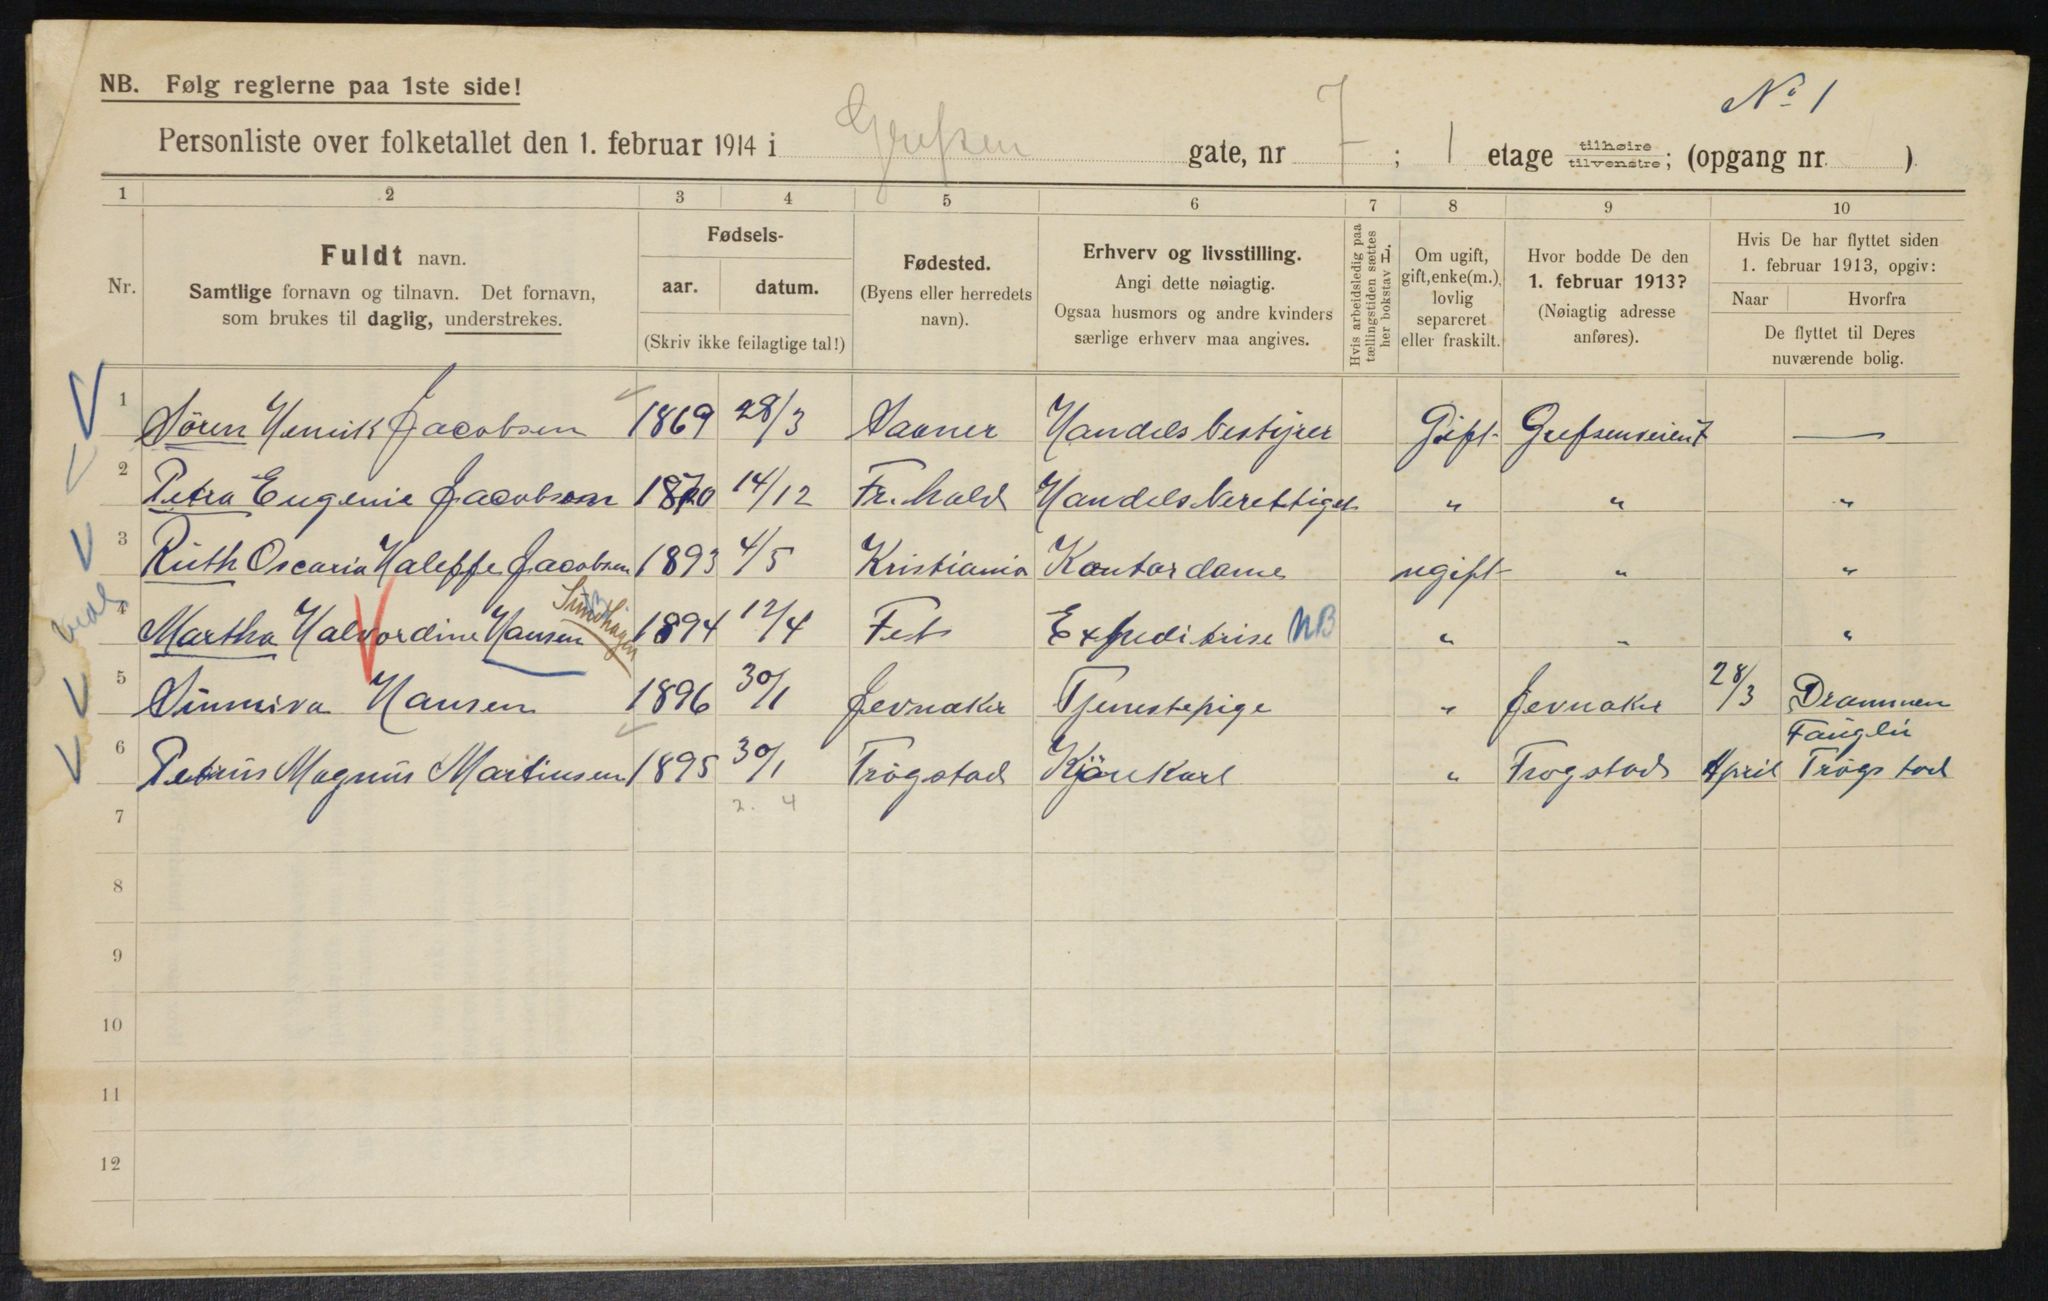 NB. Følg reglerne paa 1ste side!
No 1
Personliste over folketallet den 1. februar 1914 i Grefsen gate, nr 7 ; 1 etage tilhøire tilvenstre; (opgang nr. )
1 2 3 4 5 6 7 8 9 10
Nr.
Fuldt navn.
Samtlige fornavn og tilnavn. Det fornavn,
som brukes til daglig, understrekes.
Fødsels-
aar. datum.
(Skriv ikke feilagtige tal!)
Fødested.
(Byens eller herredets
navn).
Erhverv og livsstilling.
Angi dette nøiagtig.
Ogsaa husmors og andre kvinders
særlige erhverv maa angives.
Hvis arbeidsledig paa
tællingstiden sættes
her bokstav L.
Om ugift,
gift, enke(m.),
lovlig
separeret
eller fraskilt.
Hvor bodde De den
1. februar 1913?
(Nøiagtig adresse
anføres).
Hvis De har flyttet siden
1. februar 1913, opgiv:
Naar Hvorfra
De flyttet til Deres
nuværende bolig.
1 Søren Henrik Jacobsen 1869 28/3 Saaner Handelsbestyrer Gift Grefsenveien 7 —
2 Petra Eugenie Jacobsen 1870 14/12 Fr.hald Handelsberettiget " " "
3 Ruth Oscaria Haleffe Jacobsen 1893 4/5 Kristiania Kontordame ugift " "
4 Martha Halvordine Hansen 1894 12/4 Fet Expeditrise NB " " "
5 Sunniva Hansen 1896 30/1 Jevnaker Tjenestepige " Jevnaker 28/3 Drammen
6 Petrus Magnus Martinsen 1895 30/1 Trøgstad Kjørekarl " Trøgstad April Trøgstad
2. 4
7
8
9
10
11
12